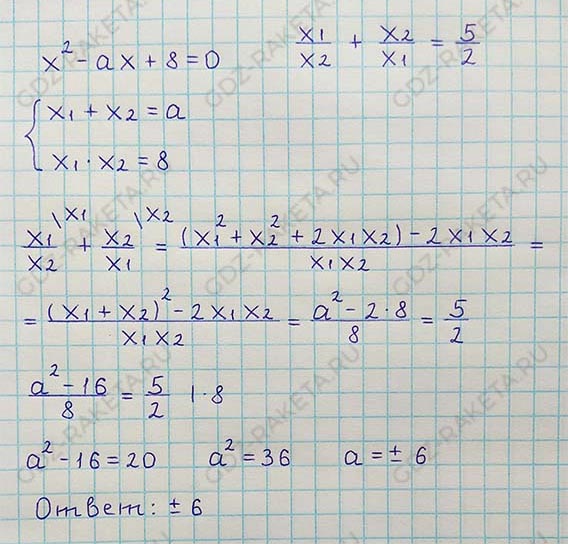 x² - ax + 8 = 0    x1/x2 + x2/x1 = 5/2
{ x1 + x2 = a
x1 · x2 = 8
x1\x1/x2 + x2\x2/x1 = ((x1² + x2² + 2x1x2) - 2x1x2)/(x1x2) =
= ((x1 + x2)² - 2x1x2)/(x1x2) = (a² - 2·8)/8 = 5/2
(a² - 16)/8 = 5/2 | ·8
a² - 16 = 20    a² = 36    a = ± 6
Ответ: ± 6
GDZ-RAKETA.RU